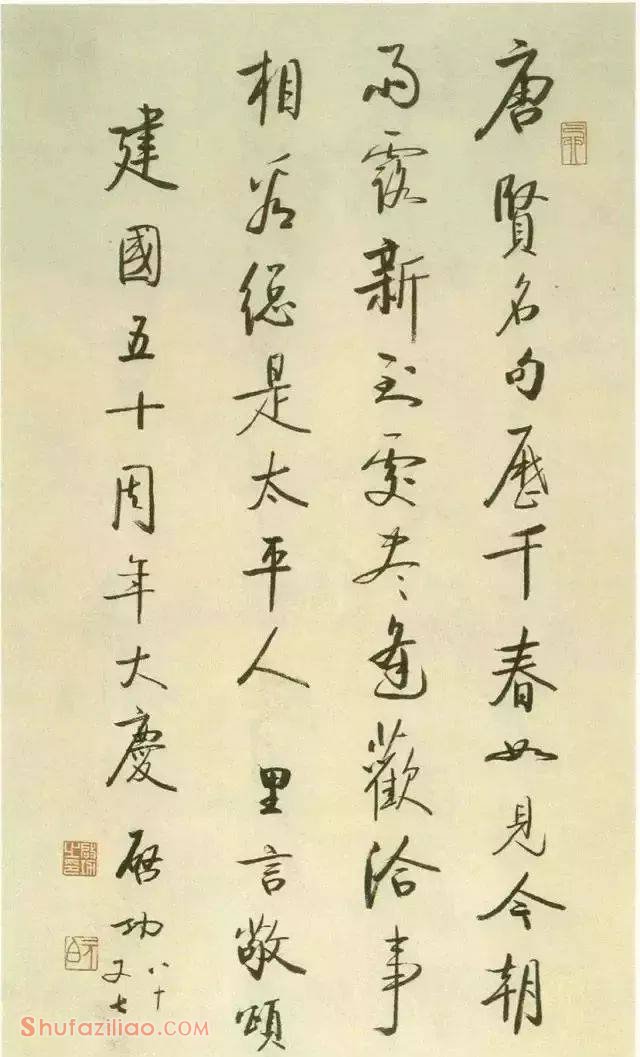 唐賢名句歷千春如見今朝
雨露新到處盡逢歡洽事
相看總是太平人 里言敬頌
建國五十周年大慶 啓功 八十又七
Shufaziliao.com